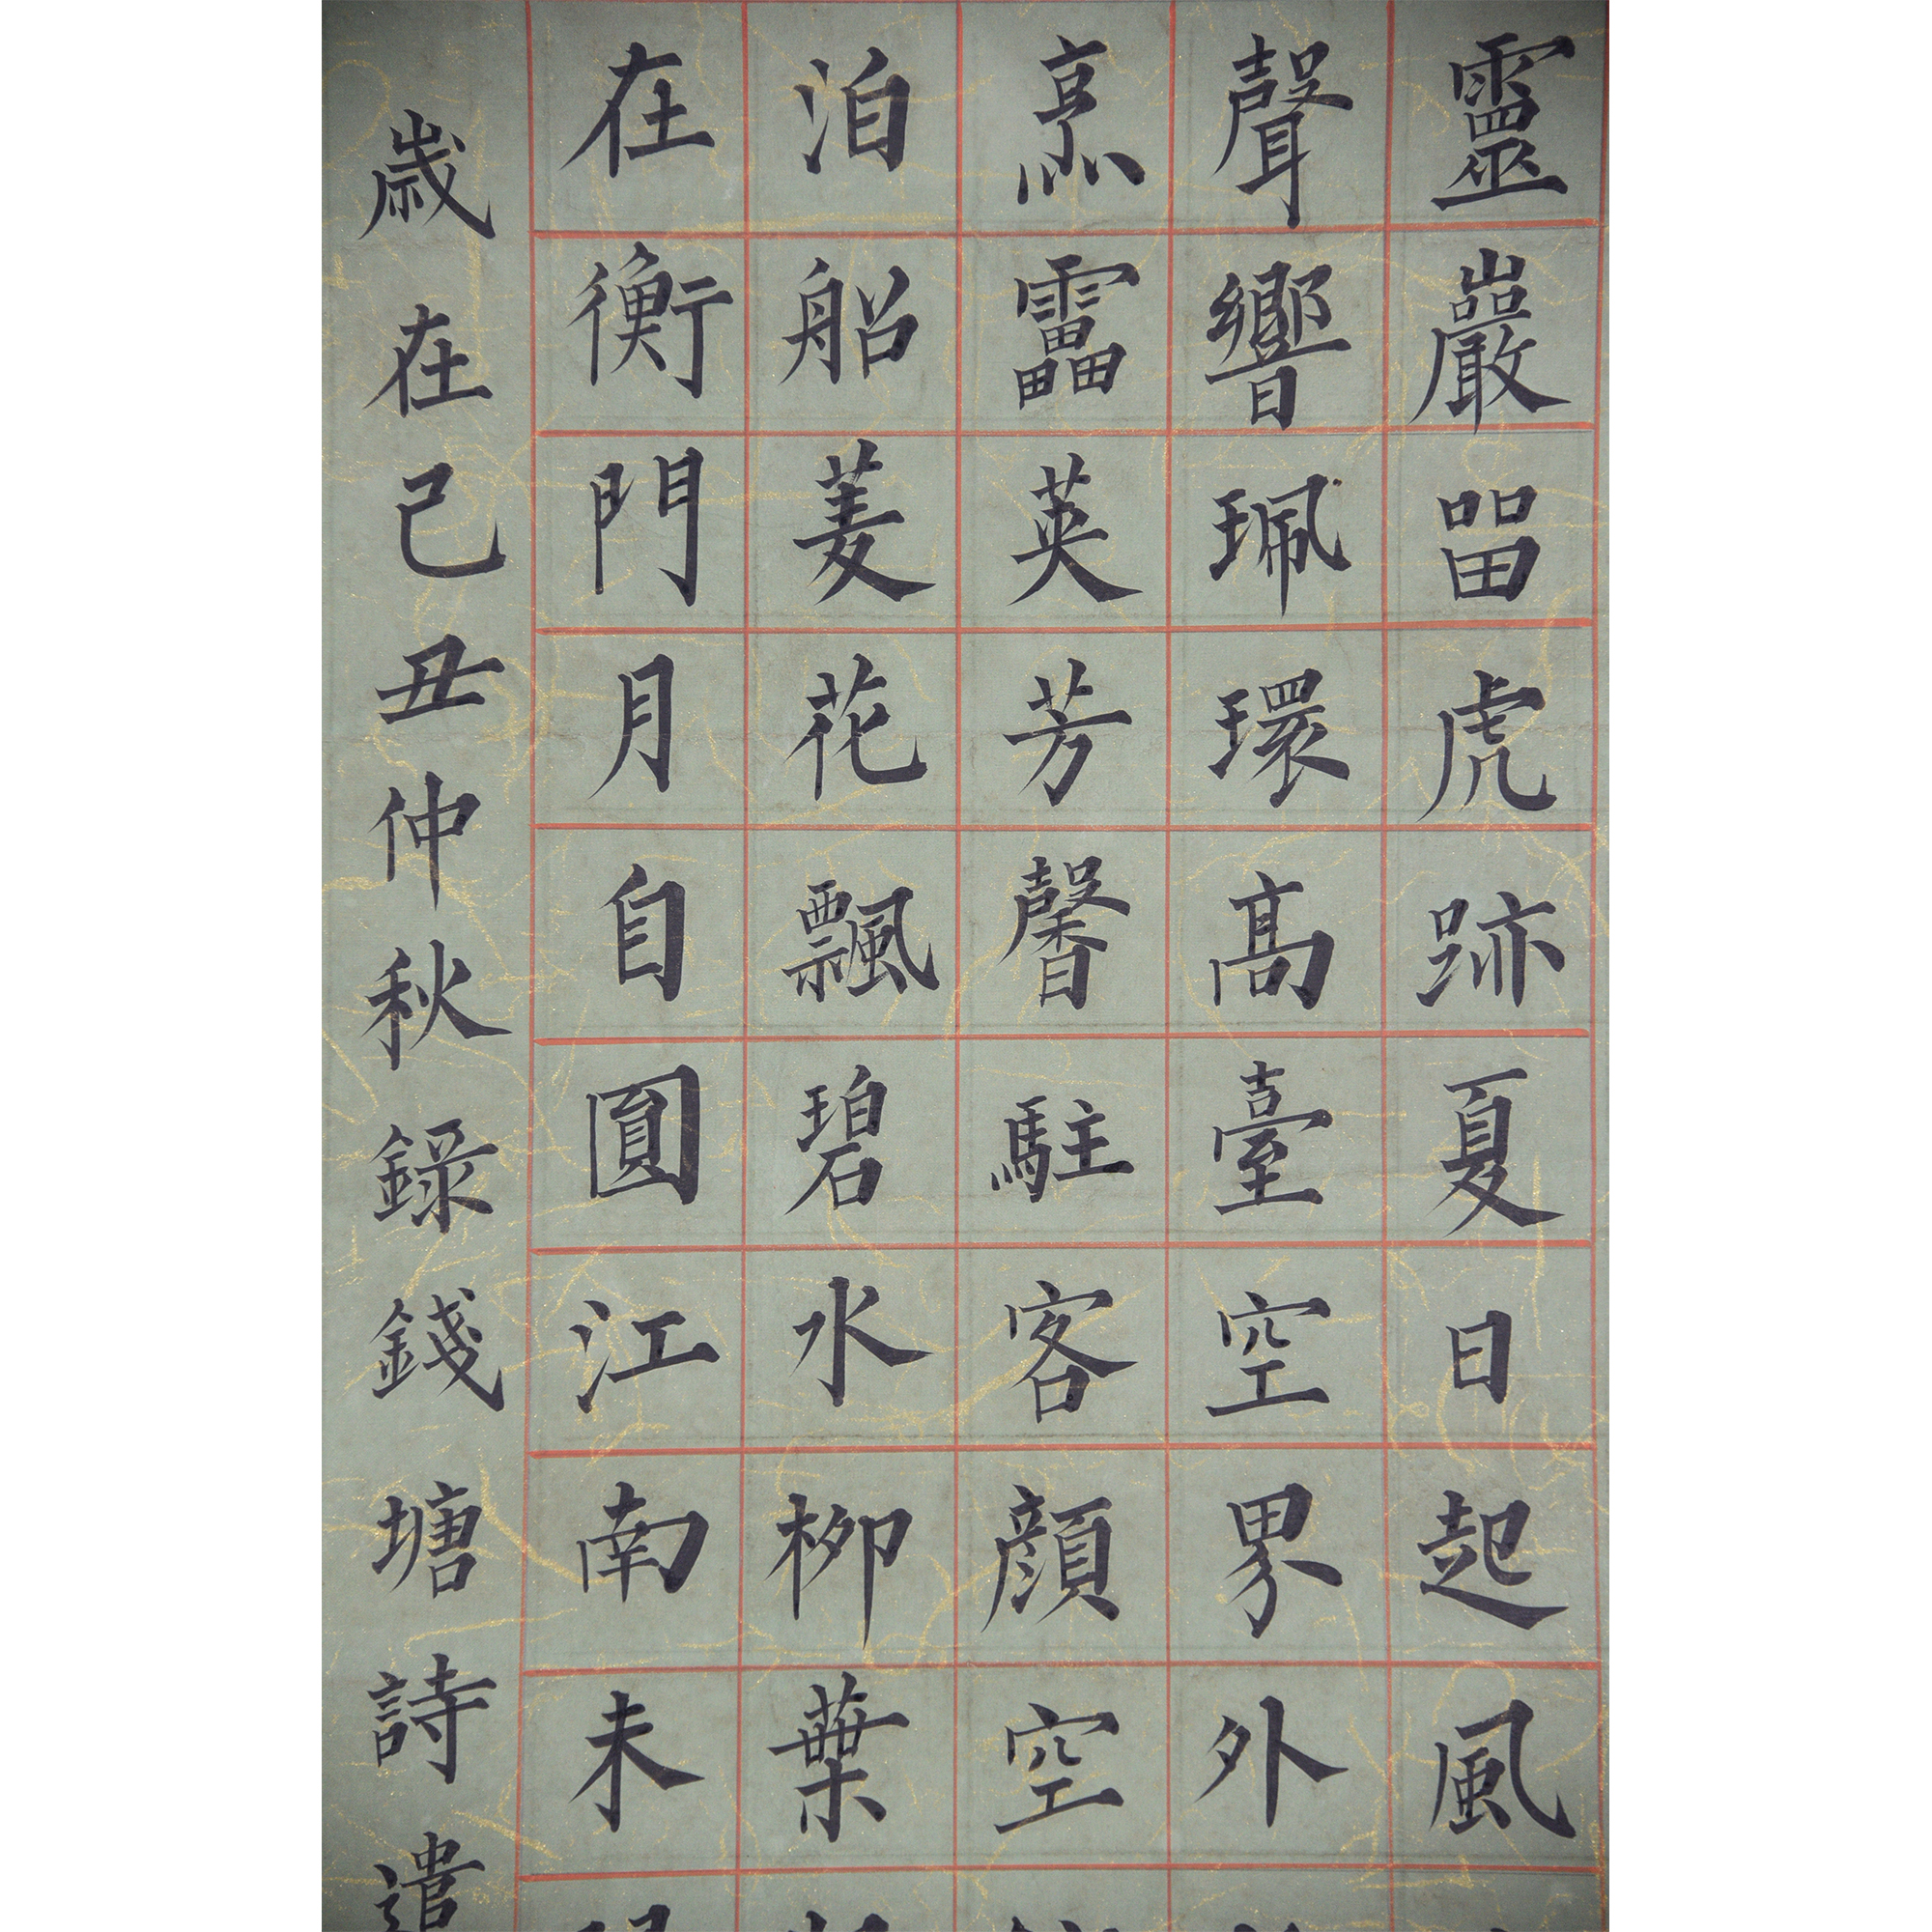 靈巖畱虎跡夏日起風
聲響珮環高臺空界外
烹靁英芳馨駐客顏空
泊船菱花飄碧水柳葉
在衡門月自圓江南未
歲在己丑仲秋錄錢塘詩遣